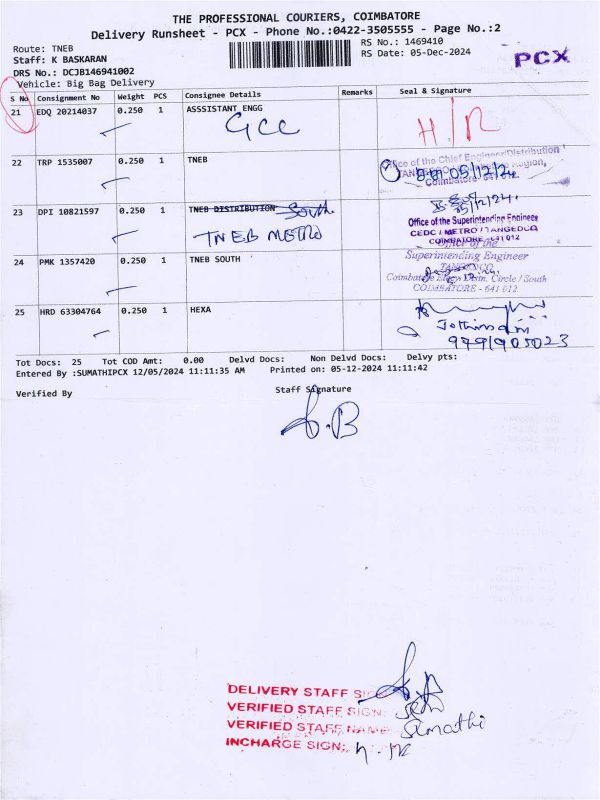 THE PROFESSIONAL COURIERS, COIMBATORE
Delivery Runsheet - PCX - Phone No.:0422-3505555 - Page No.:2
Route: TNEB
RS No.: 1469410
Staff: K BASKARAN
RS Date: 05-Dec-2024
PCX
DRS No.: DCJB146941002
Vehicle: Big Bag Delivery
S No Consignment No Weight PCS Consignee Details Remarks Seal & Signature
21 EDQ 20214037 0.250 1 ASSSISTANT ENGG
GCC
H/R
22 TRP 1535007 0.250 1 TNEB
Office of the Chief Engineer/Distribution
Region,
05/12/24
Coimbatore
23 DPI 10821597 0.250 1 TNEB DISTRIBUTION South.
TNEB METRO
05/12/24.
Office of the Superintending Engineer
CEDC / METRO / TANGEDCO
COIMBATORE - 641 012
24 PMK 1357420 0.250 1 TNEB SOUTH
Office of the
Superintending Engineer
TANGEDCO
Coimbatore Elecy. Distn. Circle / South
COIMBATORE - 641 012.
25 HRD 63304764 0.250 1 HEXA
Tot Docs: 25 Tot COD Amt: 0.00 Delvd Docs: Non Delvd Docs: Delvy pts:
Entered By :SUMATHIPCX 12/05/2024 11:11:35 AM Printed on: 05-12-2024 11:11:42
Verified By
Staff Signature
S.B
DELIVERY STAFF SIGN
VERIFIED STAFF SIGN:
VERIFIED STAFF NAME: Sumathi
INCHARGE SIGN: